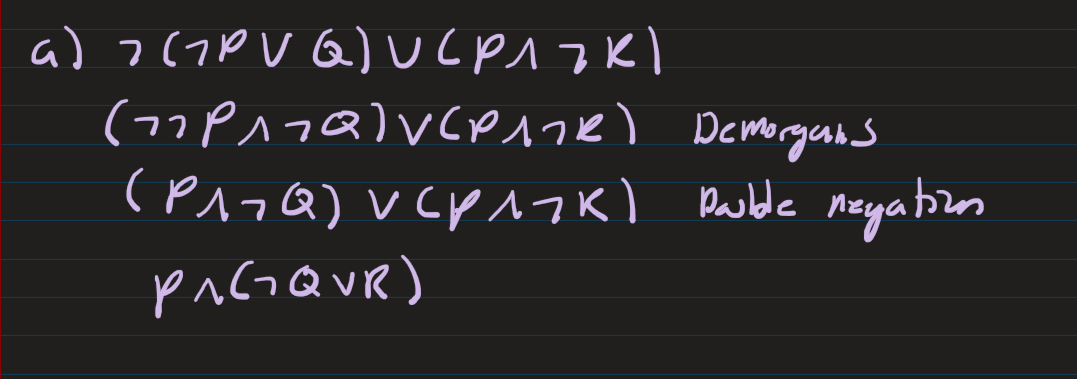 a) ¬(¬P ∨ Q) ∨ (P ∧ ¬R)
(¬¬P ∧ ¬Q) ∨ (P ∧ ¬R) Demorgans
(P ∧ ¬Q) ∨ (P ∧ ¬R) Double negation
P ∧ (¬Q ∨ R)